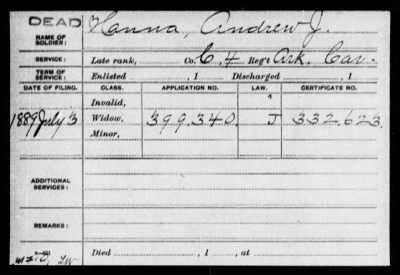 DEAD
NAME OF SOLDIER: Hanna, Andrew J.
SERVICE: Late rank, Co. C. 4 Reg't Ark. Cav.
TERM OF SERVICE: Enlisted , 1 Discharged , 1
DATE OF FILING. CLASS. APPLICATION NO. LAW. CERTIFICATE NO.
Invalid,
1889 July 3 Widow, 399.340. J 332.623.
Minor,
ADDITIONAL SERVICES:
REMARKS:
Died , 1 , at